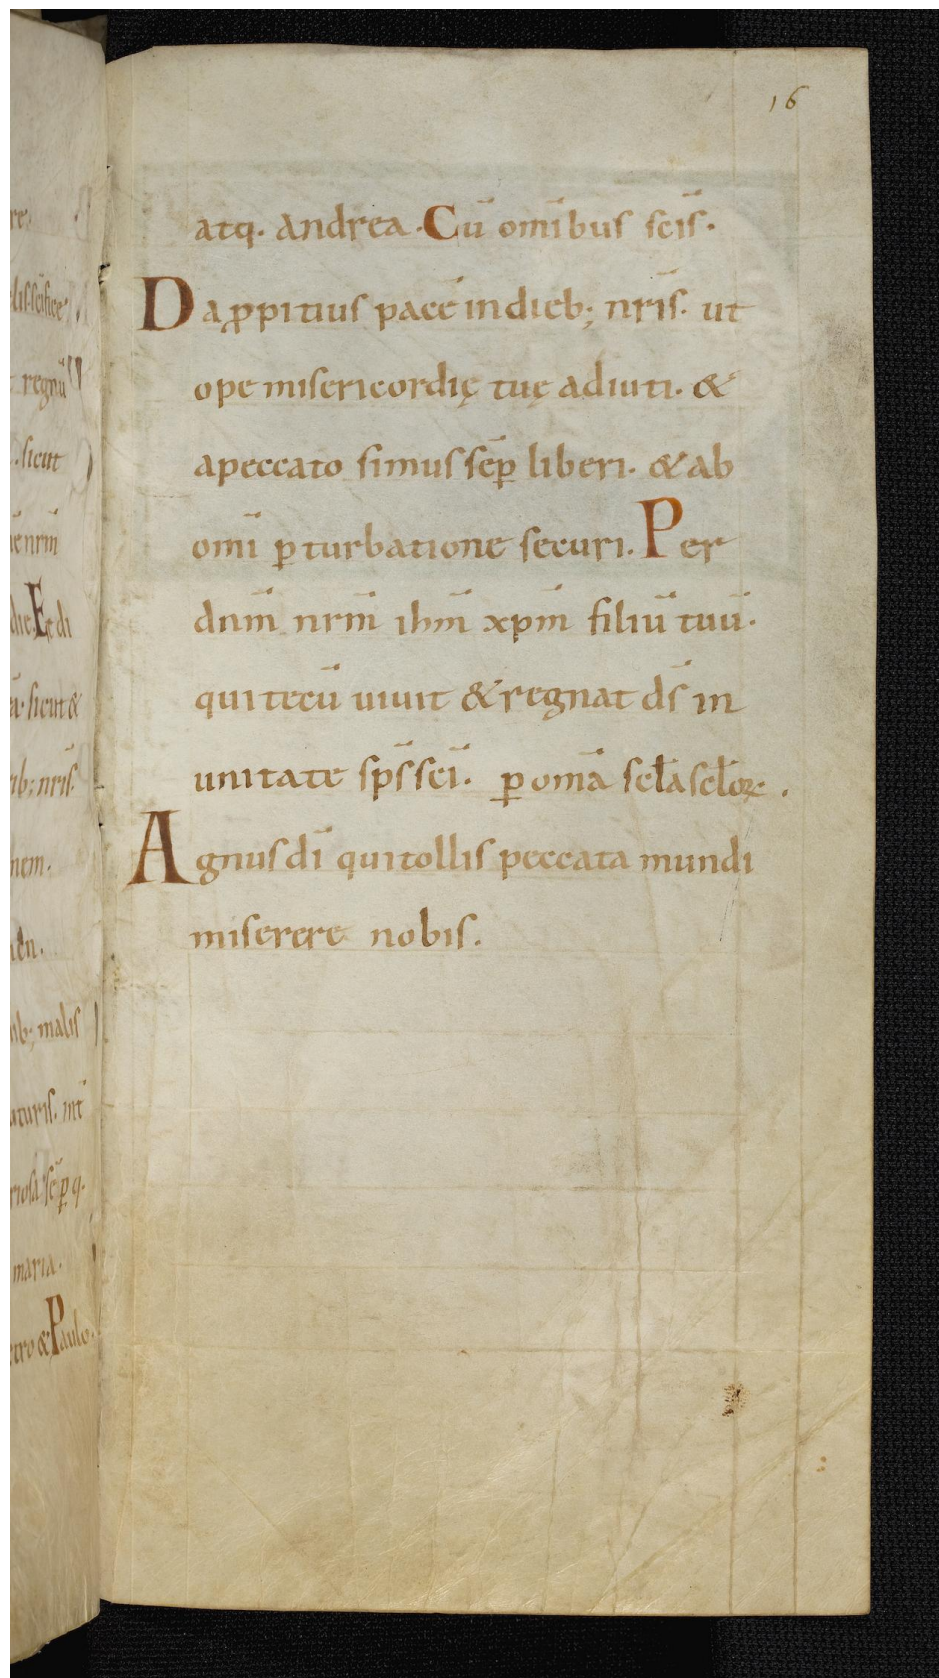 16
atq. andrea. Cū om̄ibus sc̄is.
Da ꝓpitius pacē in dieb; nr̄is. ut
ope misericordię tuę adiuti. &
a peccato simus sēꝑ liberi. & ab
om̄i ꝑturbatione securi. Per
dn̄m nr̄m ih̄m xp̄m filiū tuū.
qui tecū uiuit & regnat d̄s in
unitate sp̄s sc̄i. ꝑ om̄a sc̄la sc̄loꝝ.
Agnus dī qui tollis peccata mundi
miserere nobis.